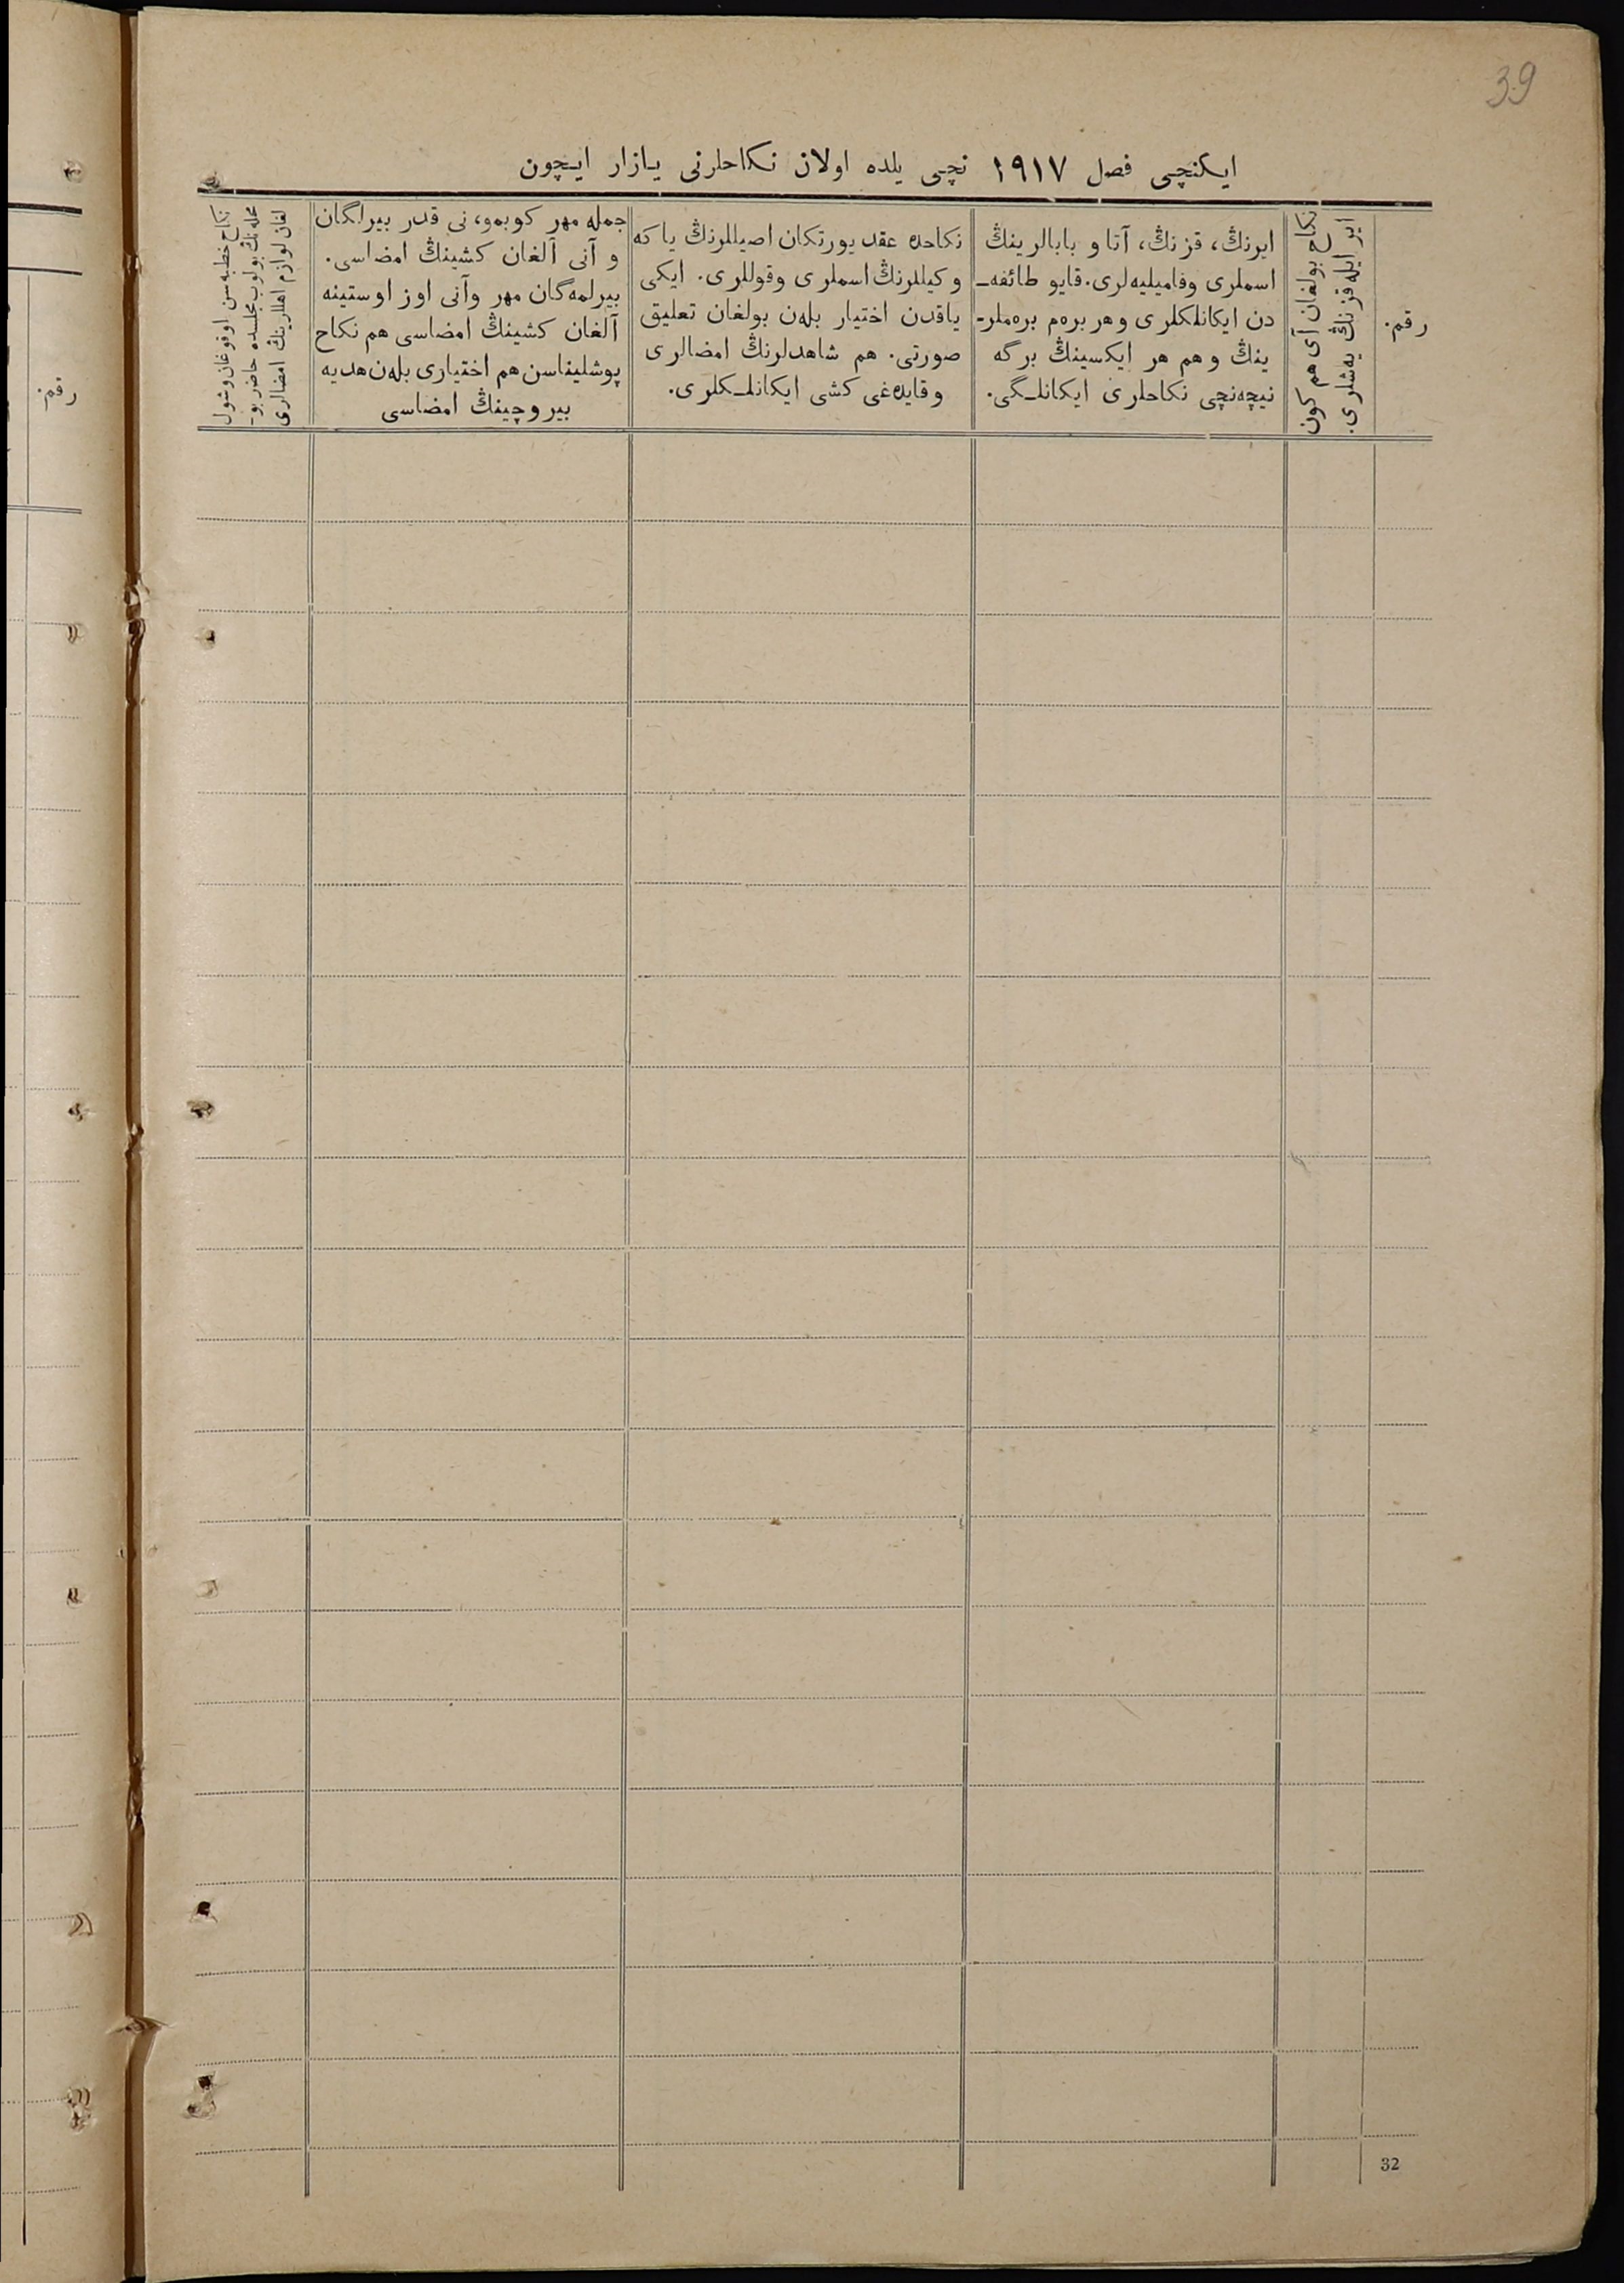 39
ایکنچی فصل ۱۹۱۷ نچی یلده اولان نکاحلرنی یازار ایچون
رقم.
نکاح بولغان آی هم کون
ایر ایله قزنڭ یەشلری.
ایرنڭ، قزنڭ، آتا و بابالرینڭ
اسملری وفامیلیەلری. قایو طائفه‌ـ
دن ایکانلکلری وهر برەم برەملر-
ینڭ وهم هر ایکسینڭ برگه
نیچەنچی نکاحلری ایکانلـگی.
نکاحده عقد یورتکان اصیللرنڭ یا که
وکیللرنڭ اسملری وقوللری. ایکی
یاقدن اختیار بلەن بولغان تعلیق
صورتی. هم شاهدلرنڭ امضالری
وقایدەغی کشی ایکانلـکلری.
جمله مهر کوبمو، نی قدر بیرلگان
و آنی آلغان کشینڭ امضاسی.
بیرلمەگان مهر وآنی اوز اوستینه
آلغان کشینڭ امضاسی هم نکاح
پوشلیناسن هم اختیاری بلەن هدیه
بیروچینڭ امضاسی
نکاح خطبه سن اوقوغان وشول
محلەنڭ بولوب مجلسده حاضر بو-
لغان لوازم اهللرینڭ امضالری
رقم.
32